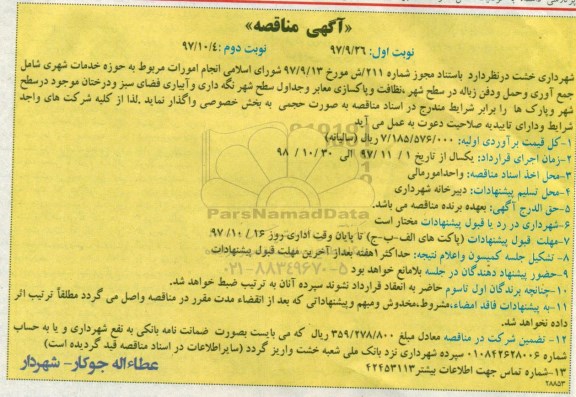 «آگهی مناقصه»
نوبت اول: ۹۷/۹/۲۶ نوبت دوم : ۹۷/۱۰/٤
شهرداری خشت درنظردارد باستناد مجوز شماره ۲۱۱/ش مورخ ۹۷/۹/۱۳ شورای اسلامی انجام امورات مربوط به حوزه خدمات شهری شامل
جمع آوری وحمل ودفن زباله در سطح شهر ،نظافت وپاکسازی معابر وجداول سطح شهر نگه داری وآبیاری فضای سبز ودرختان موجود درسطح
شهر وپارک ها را برابر شرایط مندرج در اسناد مناقصه به صورت حجمی به بخش خصوصی واگذار نماید .لذا از کلیه شرکت های واجد
شرایط ودارای تاییدیه صلاحیت دعوت به عمل می آید
۱-کل قیمت برآوردی اولیه: ۷/۱۸۵/۵۷۶/۰۰۰ ریال (سالیانه)
۲-زمان اجرای قرارداد: یکسال از تاریخ ۱ /۱۱ /۹۷ الی ۳۰ /۱۰ / ۹۸
۳-محل اخذ اسناد مناقصه: واحدامورمالی
۴-محل تسلیم پیشنهادات: دبیرخانه شهرداری
۵-حق الدرج آگهی: بعهده برنده مناقصه می باشد.
۶-شهرداری در رد یا قبول پیشنهادات مختار است
۷-مهلت قبول پیشنهادات (پاکت های الف-ب-ج) تا پایان وقت اداری روز ۱۶ /۱۰ /۹۷
۸- تشکیل جلسه کمیسون واعلام نتیجه: حداکثر۱هفته بعداز آخرین مهلت قبول پیشنهادات
۹-حضور پیشنهاد دهندگان در جلسه بلامانع خواهد بود
۱۰-چنانچه برندگان اول تاسوم حاضر به انعقاد قرارداد نشوند سپرده آنان به ترتیب ضبط خواهد شد.
۱۱-به پیشنهادات فاقد امضاء،مشروط،مخدوش ومبهم وپیشنهاداتی که بعد از انقضاء مدت مقرر در مناقصه واصل می گردد مطلقاً ترتیب اثر
داده نخواهد شد.
۱۲- تضمین شرکت در مناقصه معادل مبلغ ۳۵۹/۲۷۸/۸۰۰ ریال که می بایست بصورت ضمانت نامه بانکی به نفع شهرداری و یا به حساب
شماره ۰۱۰۸۴۲۶۲۸۰۰۶ سپرده شهرداری نزد بانک ملی شعبه خشت واریز گردد (سایراطلاعات در اسناد مناقصه قید گردیده است)
۱۳-شماره تماس جهت اطلاعات بیشتر۴۲۴۵۳۱۱۳
عطاءاله جوکار- شهردار
۲۸۸۵۳
ParsNamadData
۰۲۱-۸۸۳۴۹۶۷۰-۵